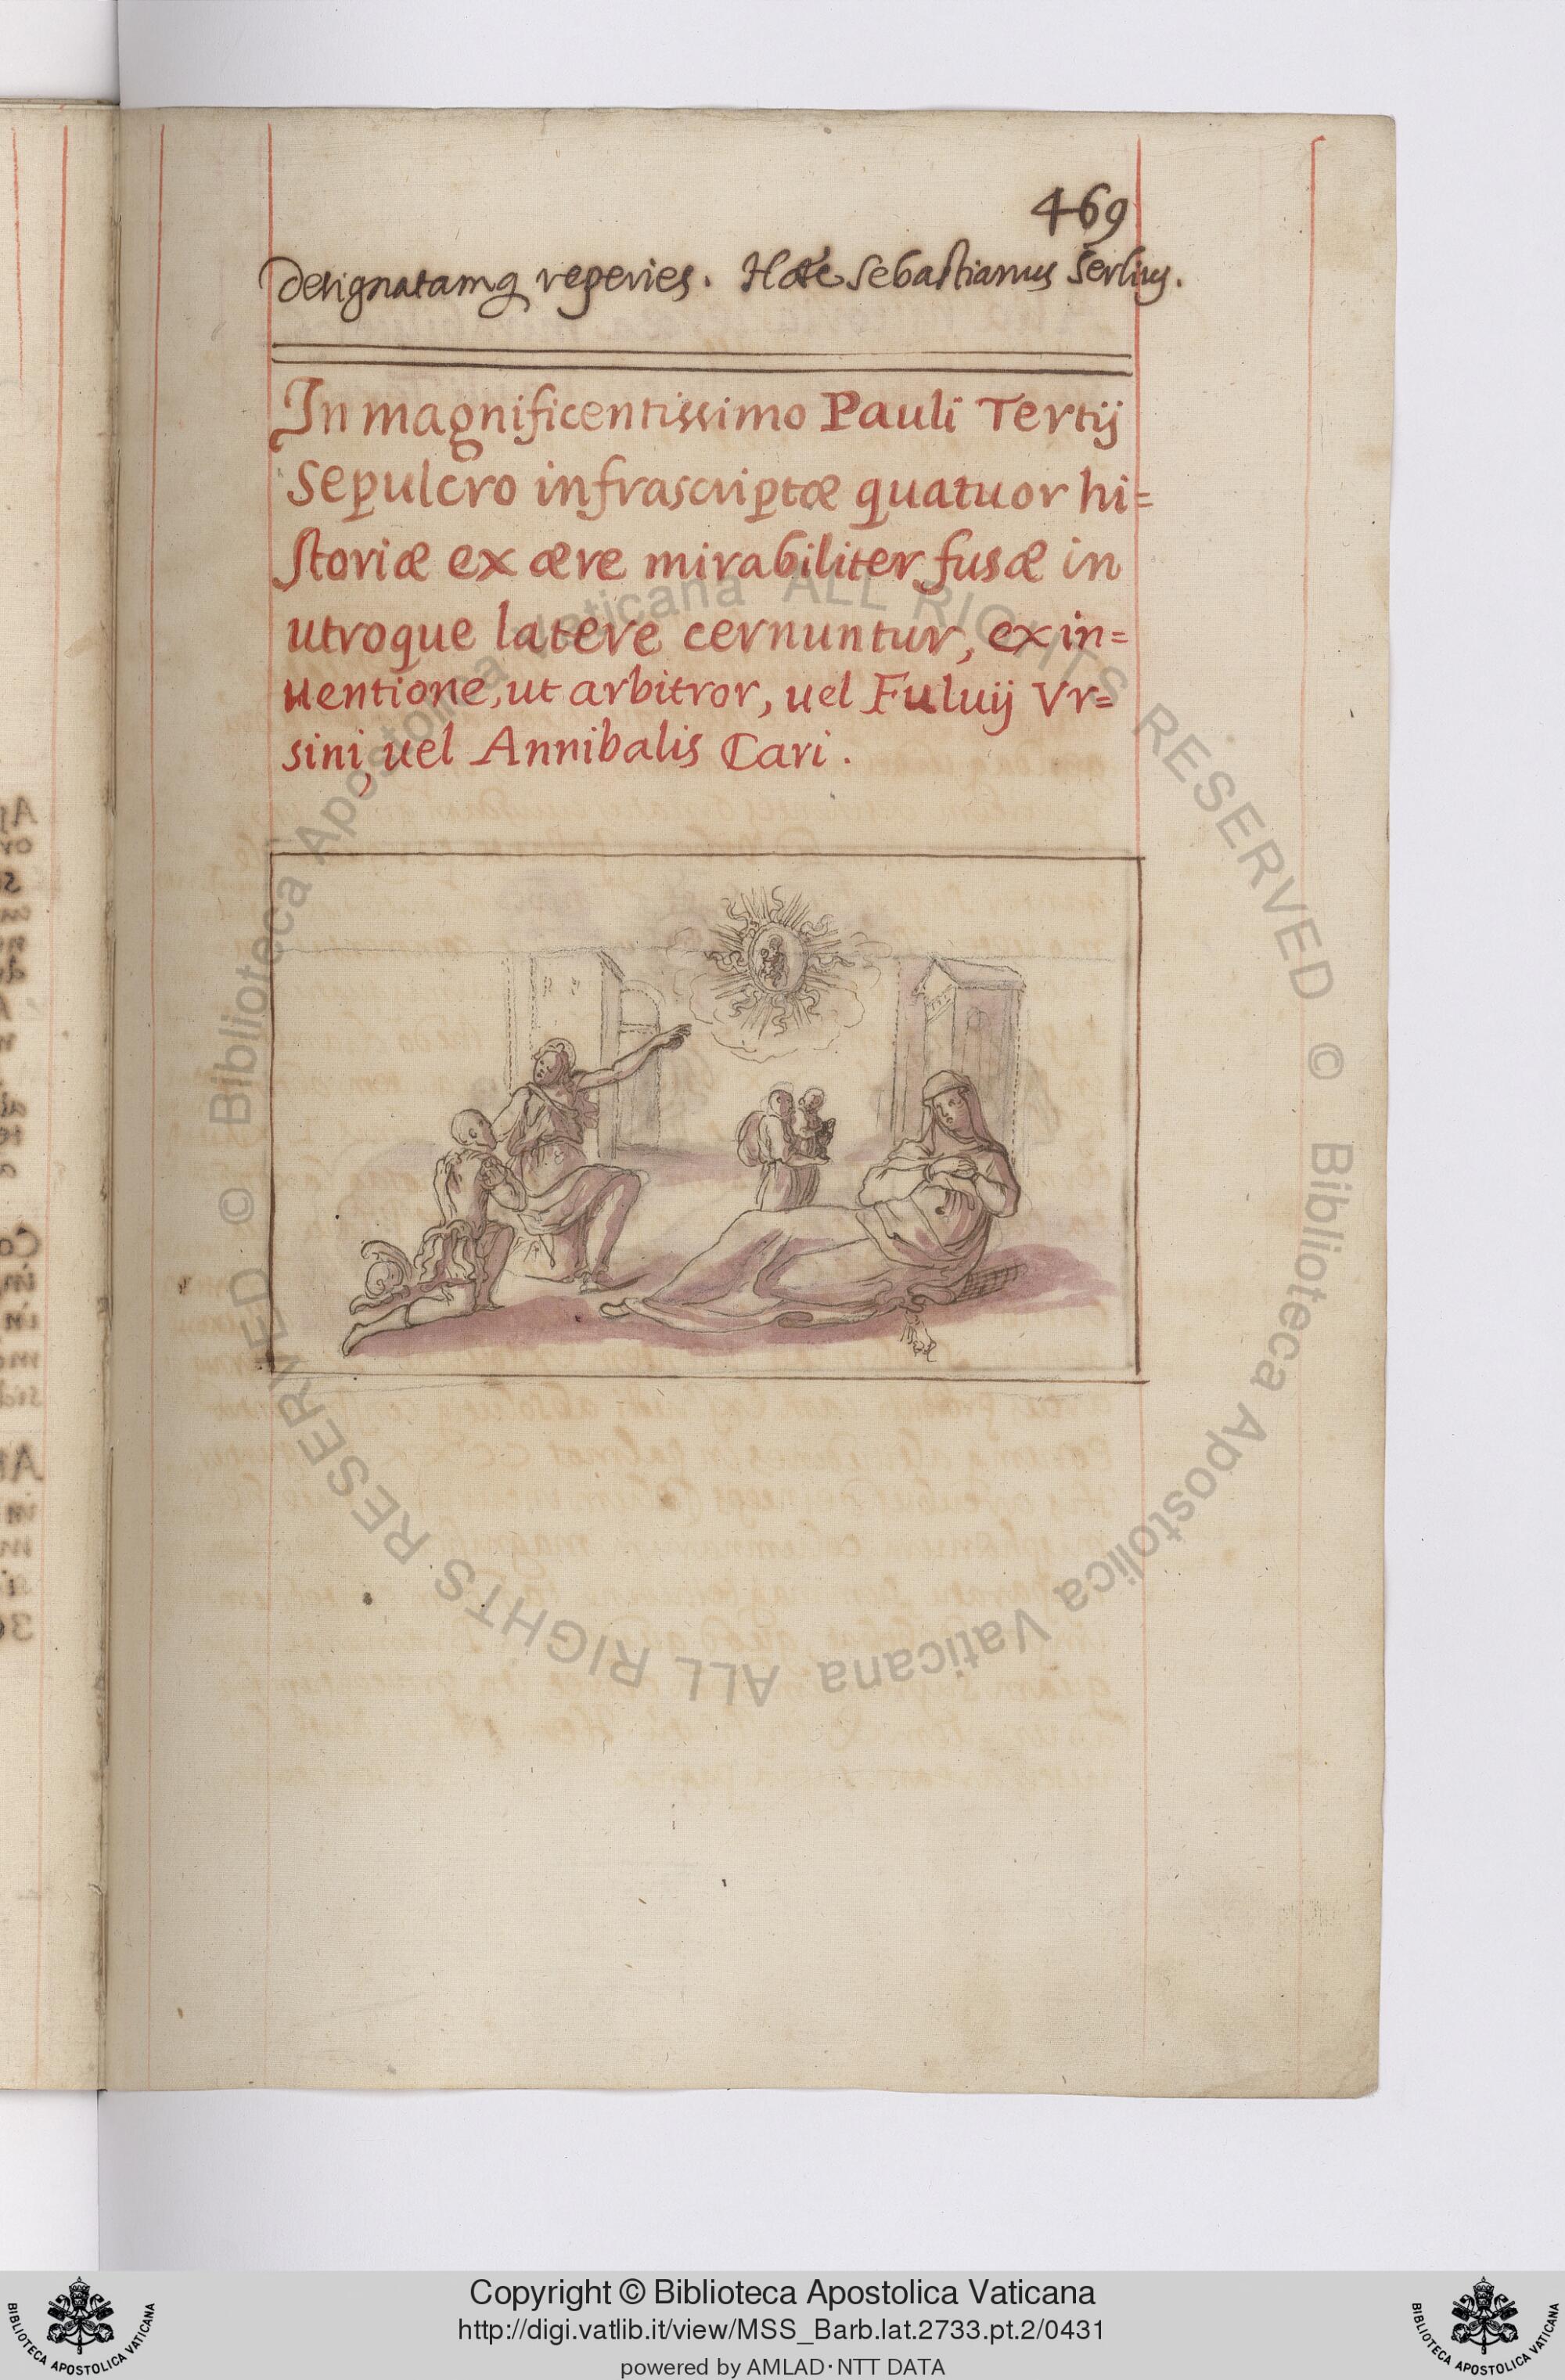 469
designatamq reperies. Hæc Sebastianus Serlius.
In magnificentissimo Pauli Tertij
Sepulcro infrascriptæ quatuor hi=
storiæ ex ære mirabiliter fusæ in
utroque latere cernuntur, ex in=
uentione, ut arbitror, uel Fuluij Vr=
sini, uel Annibalis Cari.
© Biblioteca Apostolica Vaticana ALL RIGHTS RESERVED
© Biblioteca Apostolica Vaticana ALL RIGHTS RESERVED
Copyright © Biblioteca Apostolica Vaticana
http://digi.vatlib.it/view/MSS_Barb.lat.2733.pt.2/0431
powered by AMLAD·NTT DATA
BIBLIOTECA APOSTOLICA VATICANA
BIBLIOTECA APOSTOLICA VATICANA